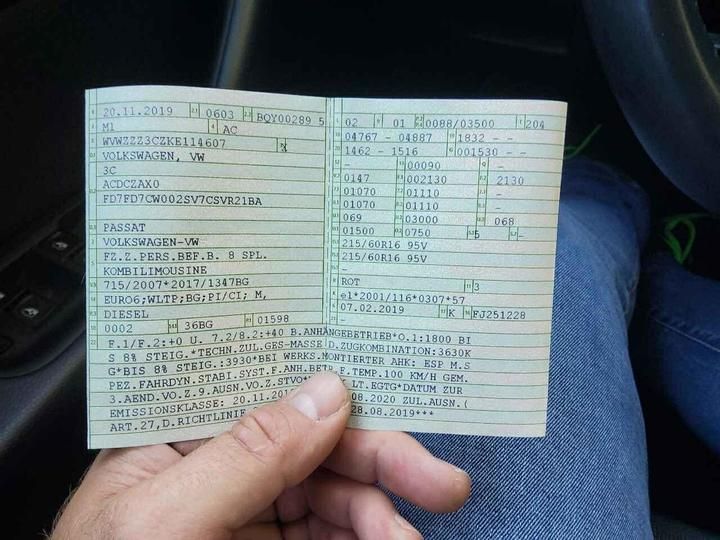 20.11.2019 0603 BQY00289 5
M1 AC
WVWZZZ3CZKE114607
VOLKSWAGEN, VW
3C
ACDCZAX0
FD7FD7CW002SV7CSVR21BA
PASSAT
VOLKSWAGEN-VW
FZ.Z.PERS.BEF.B. 8 SPL.
KOMBILIMOUSINE
715/2007*2017/1347BG
EURO6;WLTP;BG;PI/CI; M,
DIESEL
0002 36BG 01598
02 01 0088/03500 204
04767 - 04887 1832 - -
1462 - 1516 001530 - -
- 00090 -
0147 002130 2130
01070 01110 -
01070 01110 -
069 03000 068
01500 0750 5 -
215/60R16 95V
215/60R16 95V
-
ROT 3
e1*2001/116*0307*57
07.02.2019 K FJ251228
-
F.1/F.2:+0 U. 7.2/8.2:+40 B.ANHÄNGEBETRIEB*O.1:1800 BI
S 8% STEIG.*TECHN.ZUL.GES-MASSE D.ZUGKOMBINATION:3630K
G*BIS 8% STEIG.:3930*BEI WERKS.MONTIERTER AHK: ESP M.S
PEZ.FAHRDYN.STABI.SYST.F.ANH.BETR.F.TEMP.100 KM/H GEM.
3.AEND.VO.Z.9.AUSN.VO.Z.STVO* LT.EGTG*DATUM ZUR
EMISSIONSKLASSE: 20.11.201 08.2020 ZUL.AUSN.(
ART.27,D.RICHTLINIE 28.08.2019***